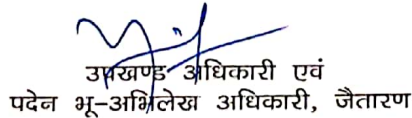 उपखण्ड अधिकारी एवं
पदेन भू-अभिलेख अधिकारी, जैतारण